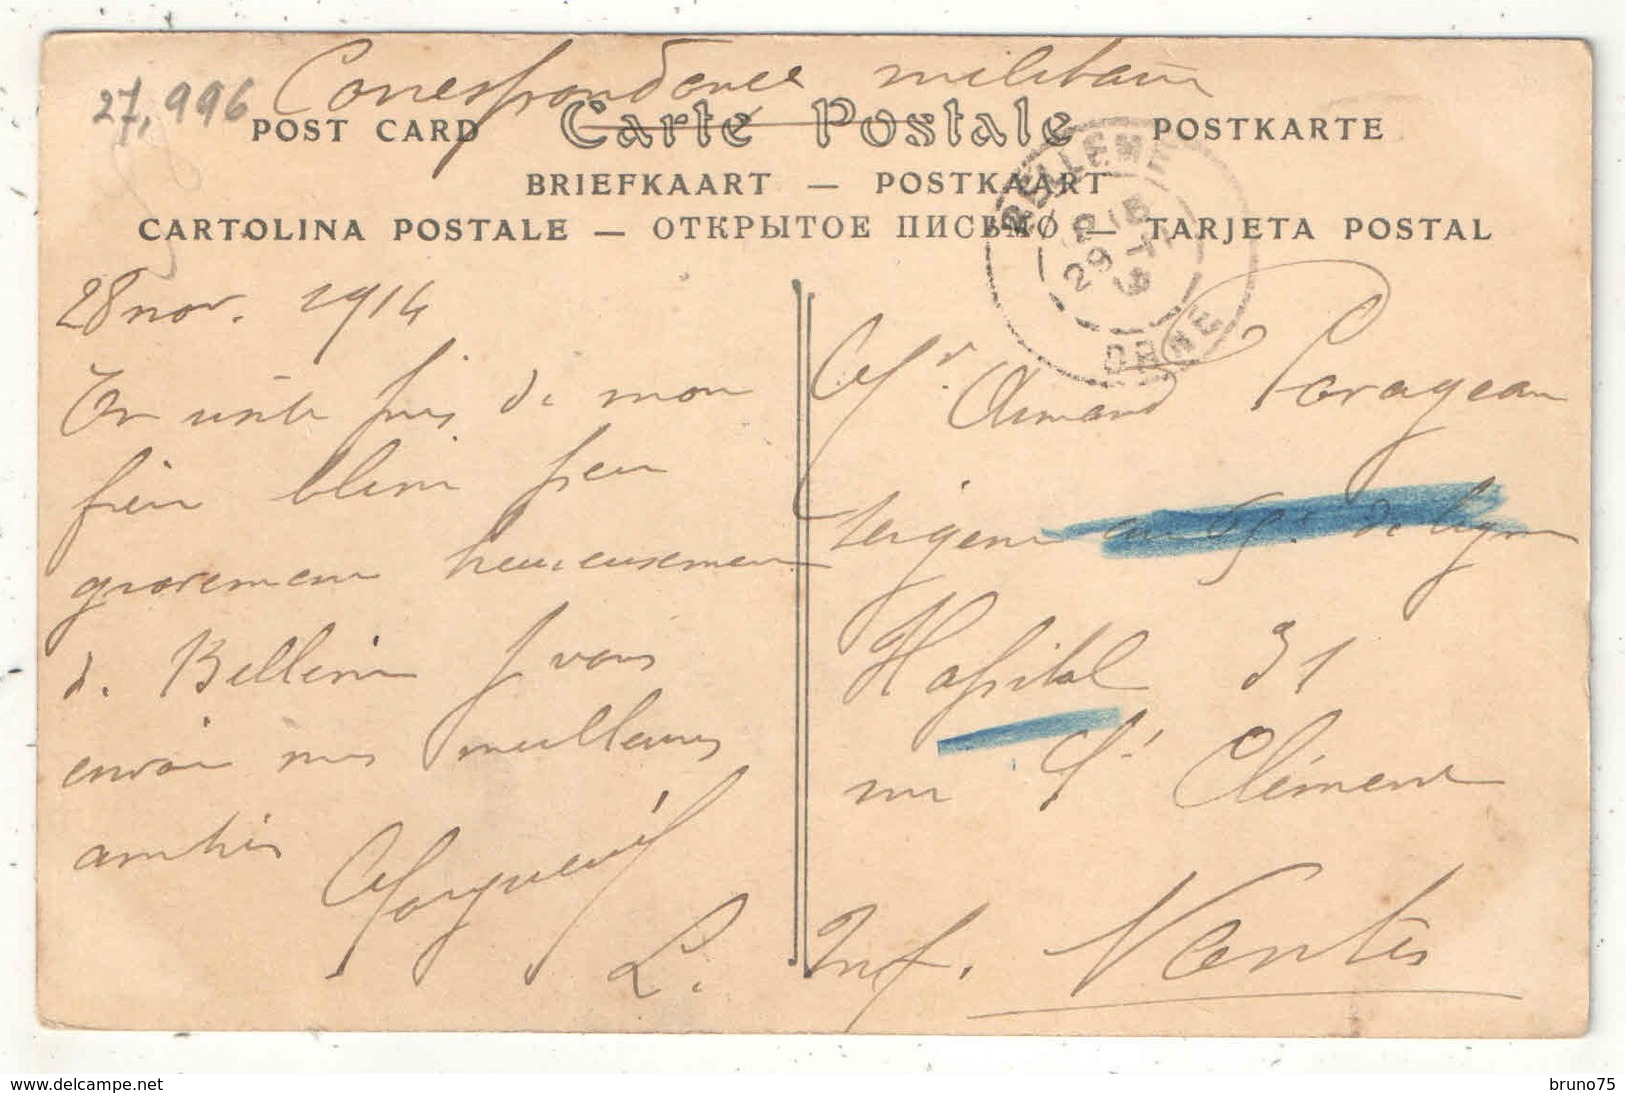 27,996
Correspondance militaire
POST CARD Carte Postale POSTKARTE
BRIEFKAART — POSTKAART
CARTOLINA POSTALE — ОТКРЫТОЕ ПИСЬМО — TARJETA POSTAL
BELLEME
29
ORNE
28 nov. 1914
En visite près de mon
frère blessé peu
gravement heureusement
d. Bellême J vous
envoie mes meilleures
amitiés
L.
Mr Armand
65e de ligne
Hopital 31
rue St Clément
Inf. Nantes
www.delcampe.net
bruno75